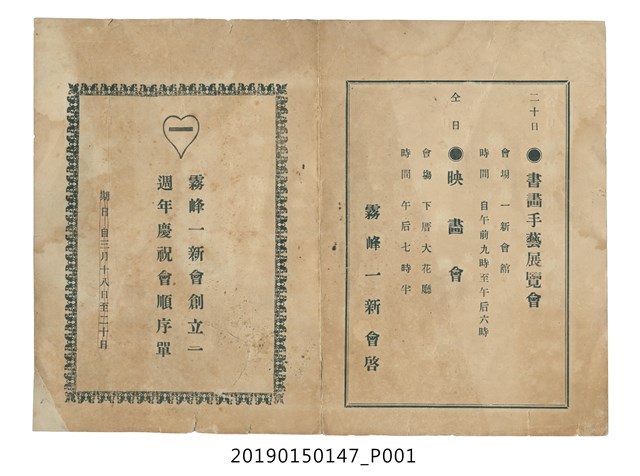 二十日 ●書畵手藝展覽會
會場 一新會館
時間 自午前九時至午后六時
仝日 ●映畵會
會場 下厝大花廳
時間 午后七時半
霧峰一新會啓
一
霧峰一新會創立二
週年慶祝會順序單
期日 自三月十八日至二十日
20190150147_P001